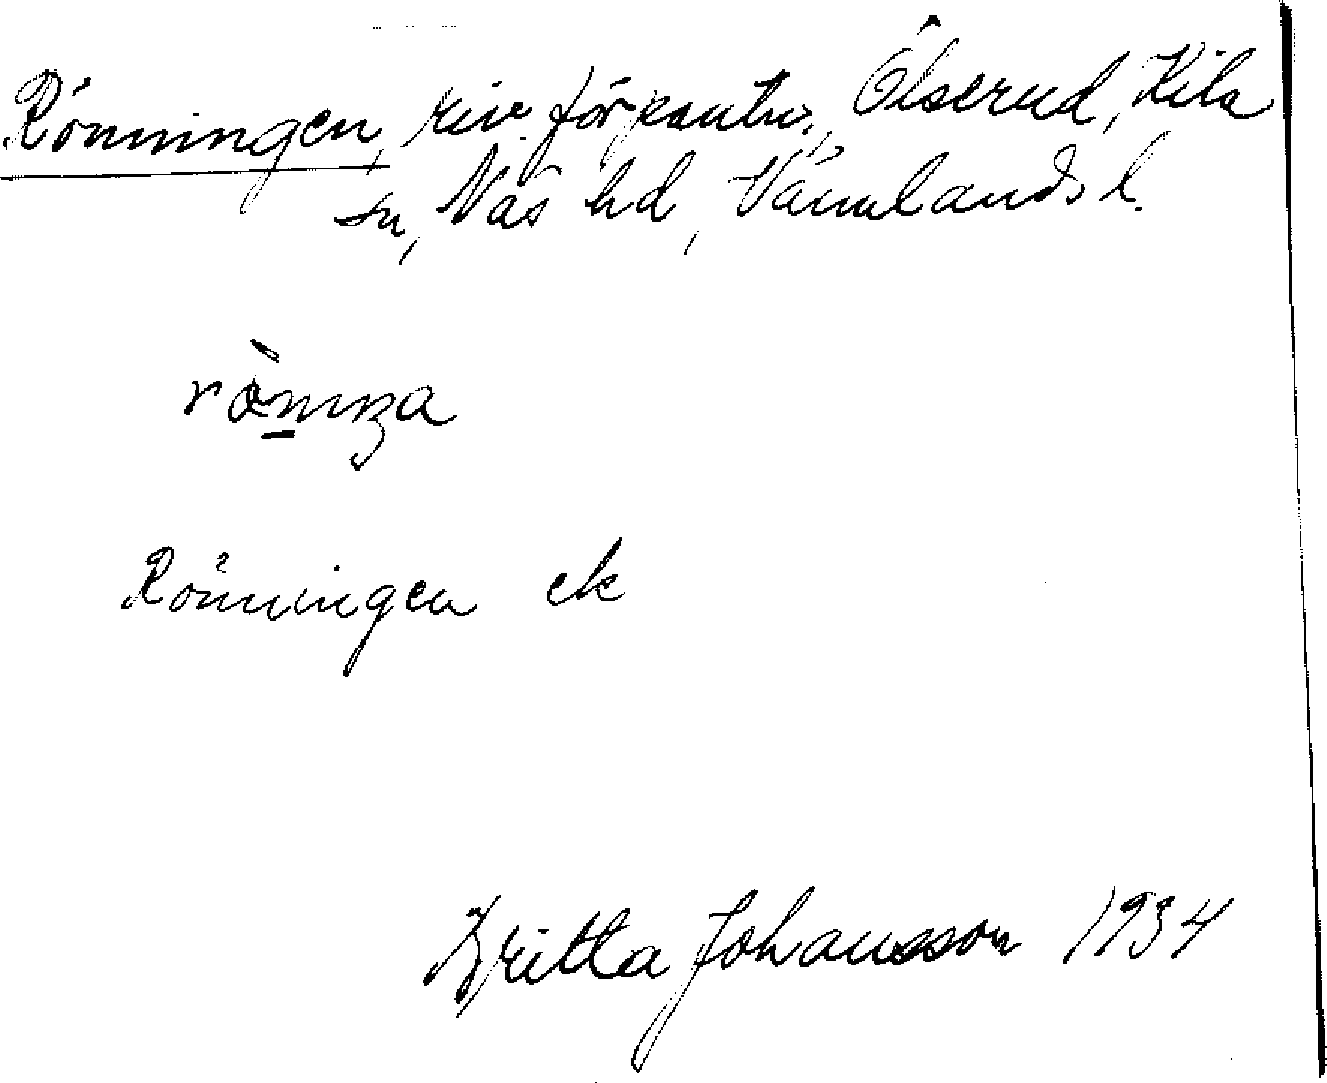 Rönningen, riv. förpantn., Ölserud, Kila
sn, Näs hd, Värmlands l.
Rönningen ek
Britta Johansson 1934